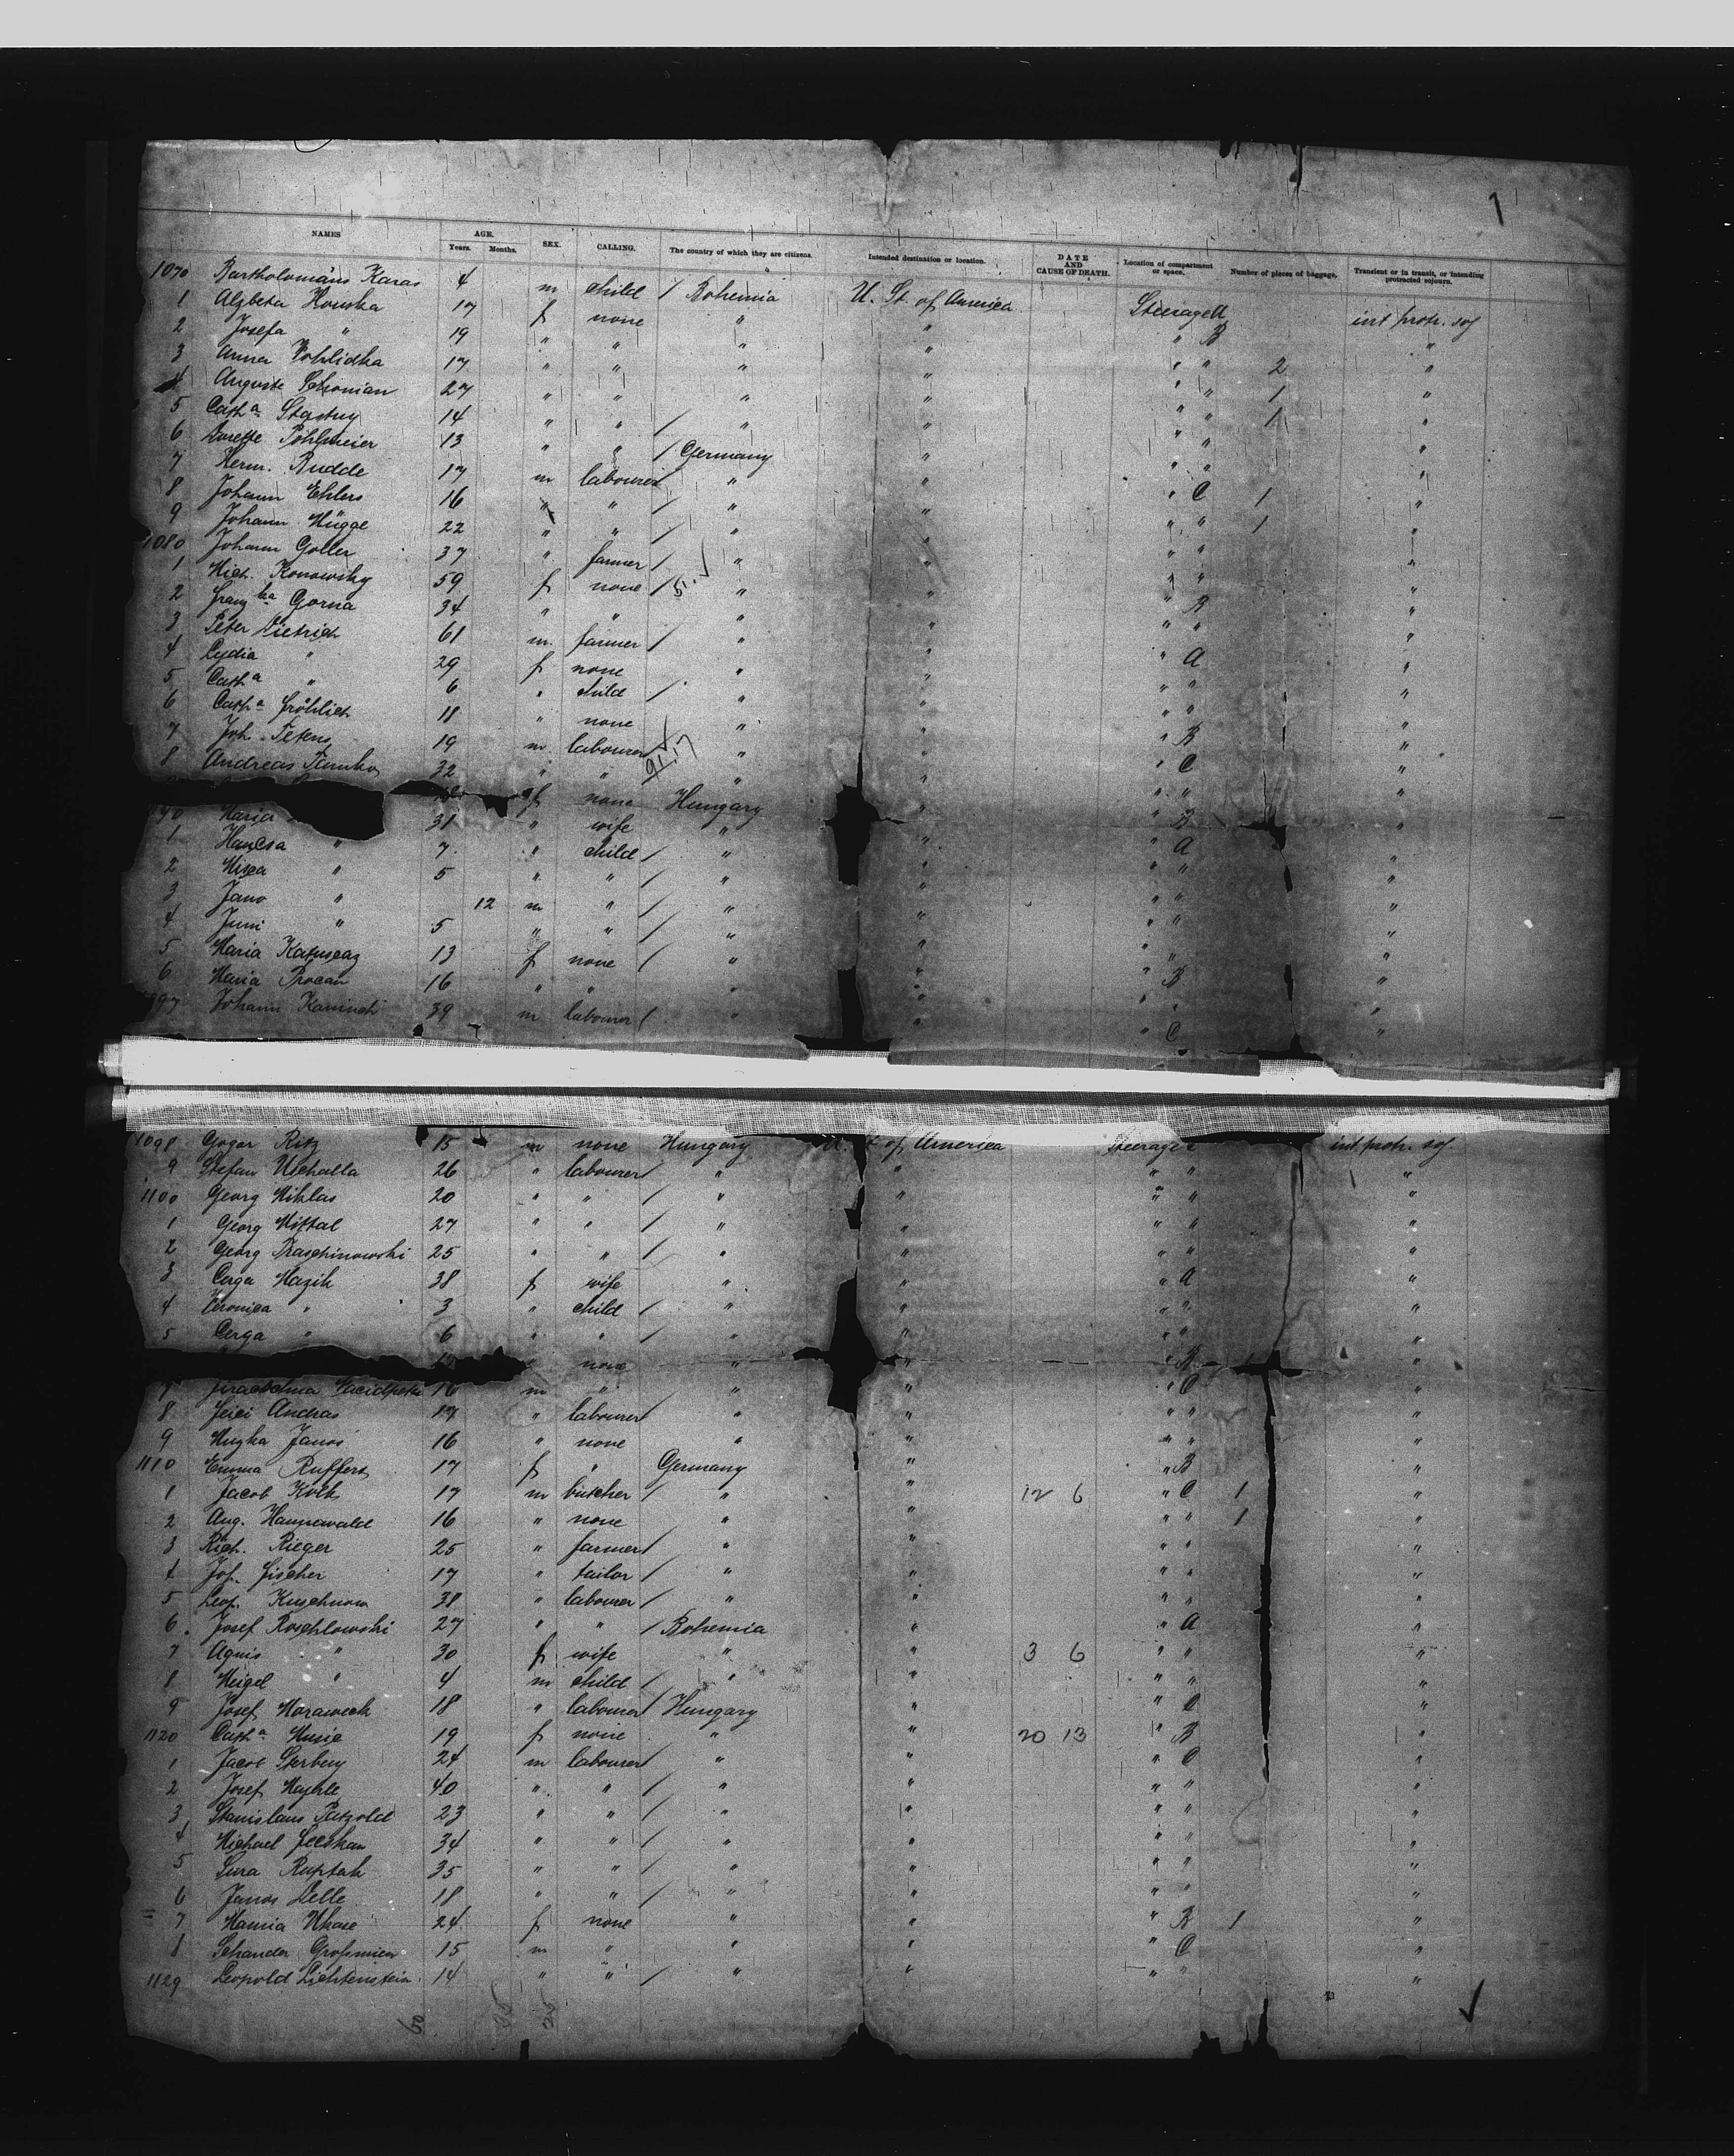 1
NAMES AGE. SEX. CALLING. The country of which they are citizens. Intended destination or location. DATE AND CAUSE OF DEATH. Location of compartment or space. Number of pieces of baggage. Transient or in transit, or intending protracted sojourn.
Years. Months.
1070 Bartholomäus Karas 4 m child / Bohemia U. St. of America Steerage A int protr. soj
1 Alzbeta Houska 17 f none " " " B "
2 Josefa " 19 " " " " " " 2 "
3 Anna 17 " " " " " " 1 "
4 Auguste 27 " " " " " " 1 "
5 Cath a Stastny 14 " " / " " " " "
6 Lorette Pöhlmeier 13 " " / Germany " " " "
7 Herm. Budde 17 m labourer " " " C 1 "
8 Johann Ehlers 16 " " / " " " " 1 "
9 Johann Hügge 22 " " / " " " " "
1080 Johann Goller 37 " farmer / " " " " "
1 Mich. Konowsky 59 f none / " " " B "
2 Franz ka Gorna 34 " " " " " " "
3 Peter Dietrich 61 m. farmer / " " " A "
4 Lydia " 29 f none " " " " "
5 Cath a " 6 " child / " " " " "
6 Cath a Fröhlich 18 " none " " " B "
7 Joh. Tetens 19 m. labourer / " " " C "
8 Andreas Tamko 32 " " " " " " "
f none Hungary " " B "
90 Maria 31 " wife " " " A "
1 Hancsa " 7 " child / " " " " "
2 Misca " 5 " " / " " " " "
3 Jano " 12 m " / " " " " "
4 Juni " 5 " " / " " " " "
5 Maria 13 f none / " " " B "
6 Maria Procan 16 " " " " " " "
1097 Johann Kaminski 39 m labourer / " " " C "
1098 Gogar Ritz 15 m none Hungary U. St of America Steerage C int protr. soj.
9 Stefan Uschalla 26 " labourer / " " " " "
1100 Georg Miklas 20 " " / " " " " "
1 Georg Mittal 27 " " / " " " " "
2 Georg Draschinowski 25 " " / " " " " "
3 Cerga Mazik 38 f wife " " " A "
4 Veronica " 3 " child / " " " " "
5 Cerga " 6 " " / " " " " "
" none " " " B "
7 16 m " " " " C "
8 Andras 17 " labourer / " " " " "
9 Janos 16 " none " " " " "
1110 Emma Ruffert 17 f " Germany " " B "
1 Jacob Koch 17 m butcher / " " 12 6 " C 1 "
2 Aug. Hannewald 16 " none " " " " 1 "
3 Rich. Rieger 25 " farmer / " " " " "
4 Joh. Fischer 17 " tailor / " " " " "
5 Leop. Kuschnow 38 " labourer / " " " " "
6 Josef Roschlowski 27 " " / Bohemia " " A "
7 Agnis " 30 f wife " " 3 6 " " "
8 Weigel " 4 m child / " " " " "
9 Josef Moraweck 18 " labourer / Hungary " " C "
1120 Cath a Music 19 f none " " 20 13 " B "
1 Jacob Sterbeny 24 m labourer / " " " C "
2 Josef 40 " " / " " " " "
3 Stanislaus Patzold 23 " " / " " " " "
4 Michael 34 " " / " " " " "
5 Sura Ruptak 35 " " / " " " " "
6 Janos Lelle 18 " " / " " " " "
7 24 f none " " " B 1 "
8 15 m " " " " C "
1129 Leopold Lichtenstein 14 " " / " " " " "